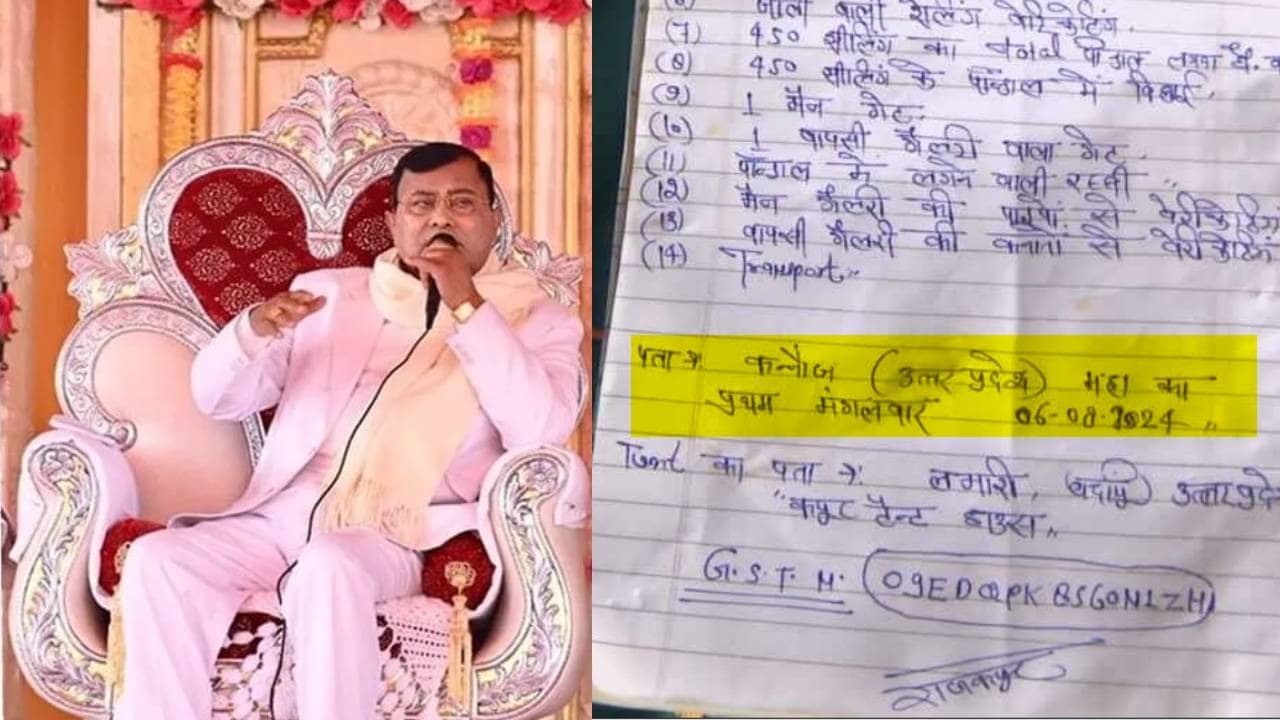 जाली वाली रेलिंग बेरिकेटिंग.
(7) 450 सीलिंग का बगल पांडाल लगना है.
(8) 450 सीलिंग के पांन्डाल में बिछाई.
(9) 1 मैन गेट.
(10) 1 वापसी गैलरी वाला गेट.
(11) पान्डाल में लगने वाली रस्सी "
(12) मैन गैलरी की पाइपों से बेरीकेटिंग
(13) वापसी गैलरी की कनातों से बेरीकेटिंग
(14) Transport "
पता → कन्नौज (उत्तर प्रदेश) माह का
प्रथम मंगलवार 06-08-2024 "
Tent का पता → उत्तरप्रदे
"कपूर टैन्ट हाउस "
G. S. T. N. 09EDQPK8560N1ZH
राजकपूर